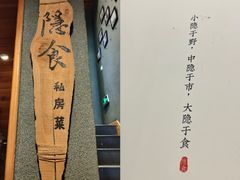 隐食
私房菜
小隐于野，中隐于市，大隐于食